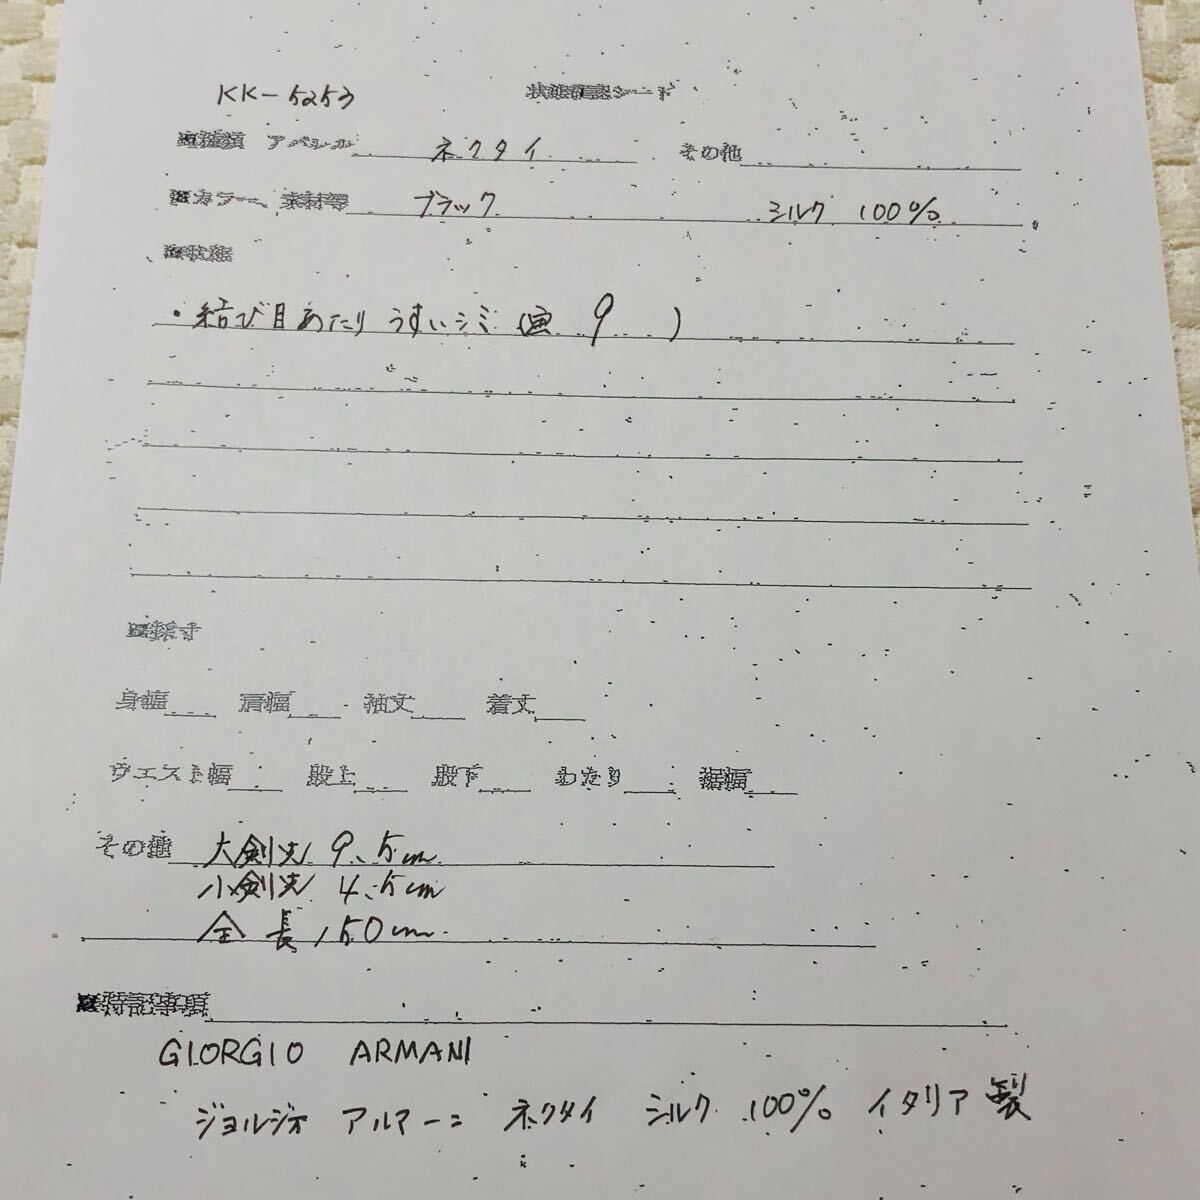 KK-5253 状態確認シート
■種類 アパレル ネクタイ その他
■カラー、素材等 ブラック シルク 100%
■状態
・結び目あたり うすいシミ (画 9 )
■採寸
身幅 肩幅 袖丈 着丈
ウエスト幅 股上 股下 わたり 裾幅
その他 大剣先 9.5cm
小剣先 4.5cm
全長 150cm
■特記事項
GIORGIO ARMANI
ジョルジオ アルマーニ ネクタイ シルク 100% イタリア製